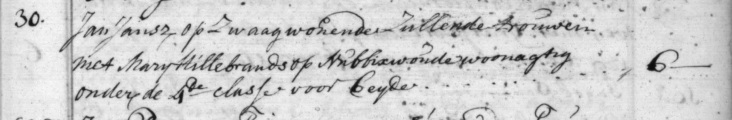 30. Jan Jansz op Zwaag wonende Zullende trouwen
met Mary Hillebrands op Nibbixwoude woonagtig
onder de 4de classe voor beyde. 6—